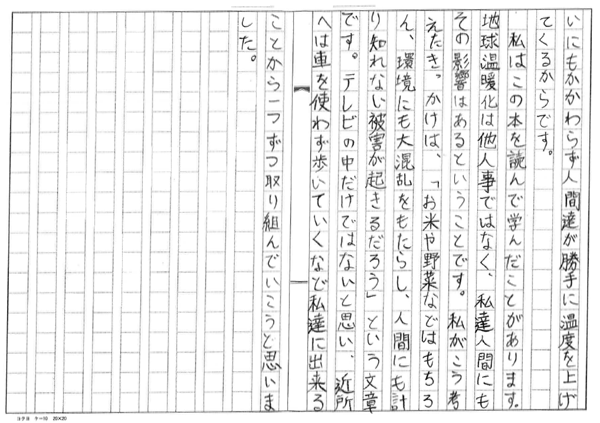 いにもかかわらず人間達が勝手に温度を上げ
てくるからです。
私はこの本を読んで学んだことがあります。
地球温暖化は他人事ではなく、私達人間にも
その影響はあるということです。私がこう考
えたきっかけは、「お米や野菜などはもちろ
ん、環境にも大混乱をもたらし、人間にも計
り知れない被害が起きるだろう」という文章
です。テレビの中だけではないと思い、近所
へは車を使わず歩いていくなど私達に出来る
ことから一つずつ取り組んでいこうと思いま
した。
コクヨ ケ-10 20×20